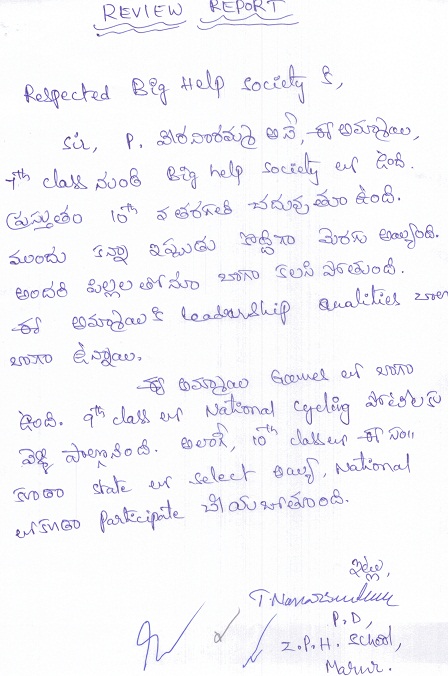 REVIEW REPORT
Respected Big Help society కి,
Sir, P. వీరనారమ్మ అనే, ఈ అమ్మాయి,
7th class నుంచి Big help society లో ఉంది.
ప్రస్తుతం 10th వ తరగతి చదువుతూ ఉంది.
ముందు కన్నా ఇప్పుడు కొద్దిగా మెరుగు అయ్యింది.
అందరి పిల్లల తోనూ బాగా కలసి పోతుంది.
ఈ అమ్మాయికి leadership qualities
బాగా ఉన్నాయి.
ఈ అమ్మాయి Games లో బాగా
ఉంది. 9th class లో National cycling పోటీలకు
వెళ్ళి పాల్గొనింది. అలాగే, 10th class లో ఈ సం॥
కూడా state లో select అయ్యి, National
లో కూడా participate చేయబోతూంది.
ఇట్లు,
P.D,
Z.P.H. School,
Marur.